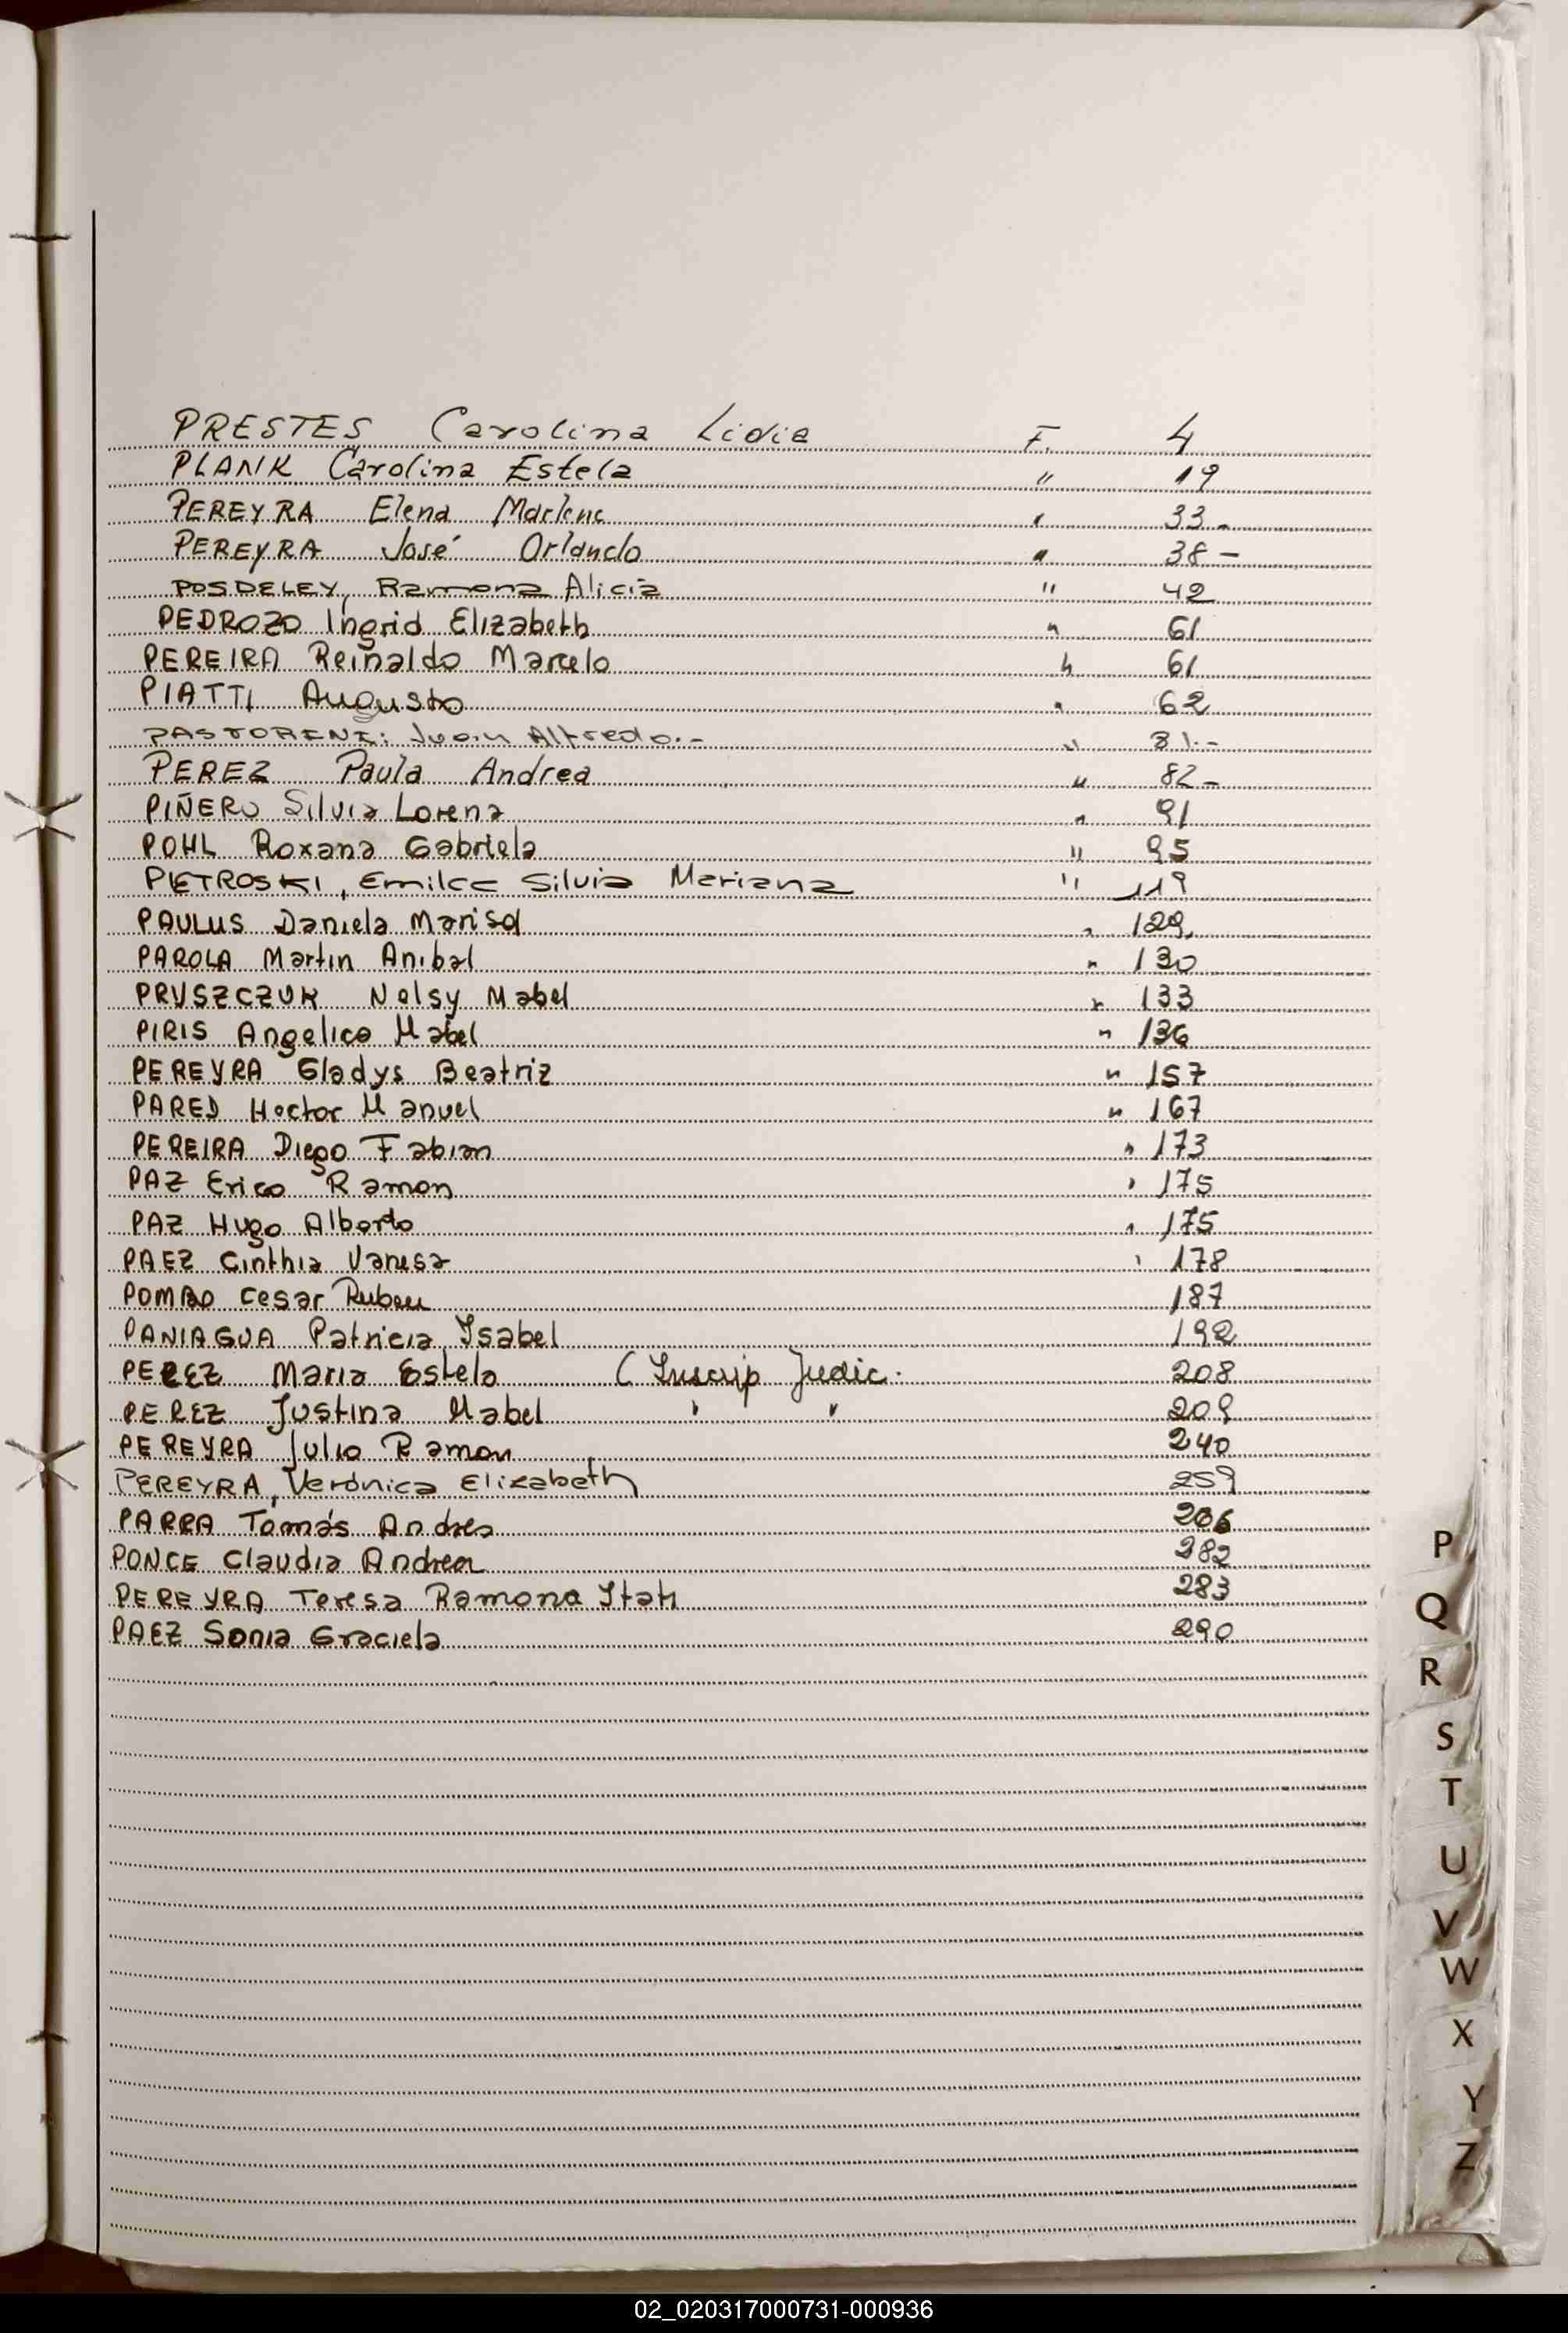 PRESTES Carolina Lidia F. 4
PLANK Carolina Estela " 19
PEREYRA Elena Marlene " 33-
PEREYRA José Orlando " 38-
POSDELEY, Ramona Alicia " 42
PEDROZO Ingrid Elizabeth " 61
PEREIRA Reinaldo Marcelo " 61
PIATTI Augusto " 62
PASTORENI: Juan Alfredo.- " 81.-
PEREZ Paula Andrea " 82-
PIÑERO Silvia Lorena " 91
POHL Roxana Gabriela " 95
PIETROSKI, Emilce Silvia Mariana " 119
PAULUS Daniela Marisol " 129
PAROLA Martin Anibal " 130
PRUSZCZUK Nelsy Mabel " 133
PIRIS Angelica Mabel " 136
PEREYRA Gladys Beatriz " 157
PARED Hector Manuel " 167
PEREIRA Diego Fabian " 173
PAZ Erico Ramon " 175
PAZ Hugo Alberto " 175
PAEZ Cinthia Vanesa " 178
POMBO Cesar Ruben 187
PANIAGUA Patricia Ysabel 192
PEREZ Maria Estela (Inscrip Judic. 208
PEREZ Justina Mabel " " 209
PEREYRA Julio Ramon 240
PEREYRA, Verónica Elizabeth 259
PARRA Tomás Andres 266
PONCE Claudia Andrea 282
PEREYRA Teresa Ramona Itati 283
PAEZ Sonia Graciela 290
P
Q
R
S
T
U
V
W
X
Y
Z
02_020317000731-000936